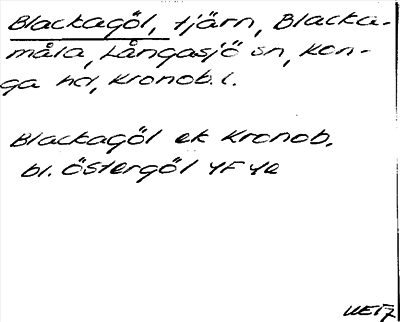 Blackagöl, tjärn, Blacka-
måla, Långasjö sn, Kon-
ga hd, Kronob. l.
Blackagöl ek Kronob.
bl. Östergöl 4F 4e